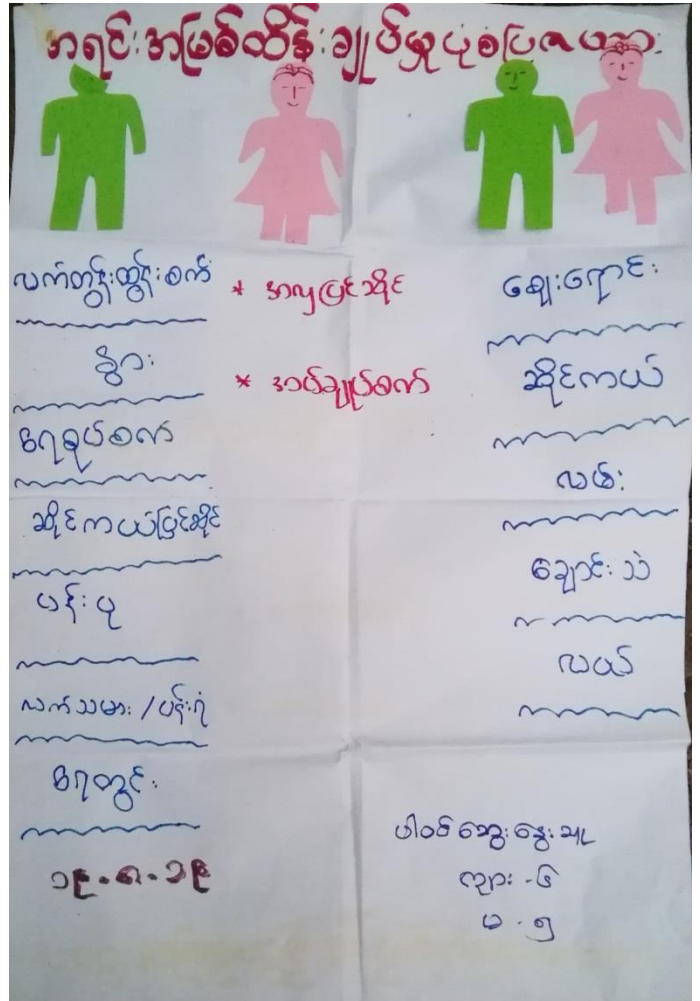 အရင်းအမြစ်ထိန်းချုပ်မှုပုံစံပြဇယား
လက်တွန်းထွန်စက်
နွား
ရေစုပ်စက်
ဆိုင်ကယ်ပြင်ဆိုင်
ပန်းပု
လက်သမား / ပန်းရံ
ရေတွင်း
၁၉.၈.၁၉
* အလှပြင်ဆိုင်
* အပ်ချုပ်စက်
ဈေးရောင်း
ဆိုင်ကယ်
လမ်း
ချောင်းသဲ
လယ်
ပါဝင်ဆွေးနွေးသူ
ကျား - ၆
မ - ၅